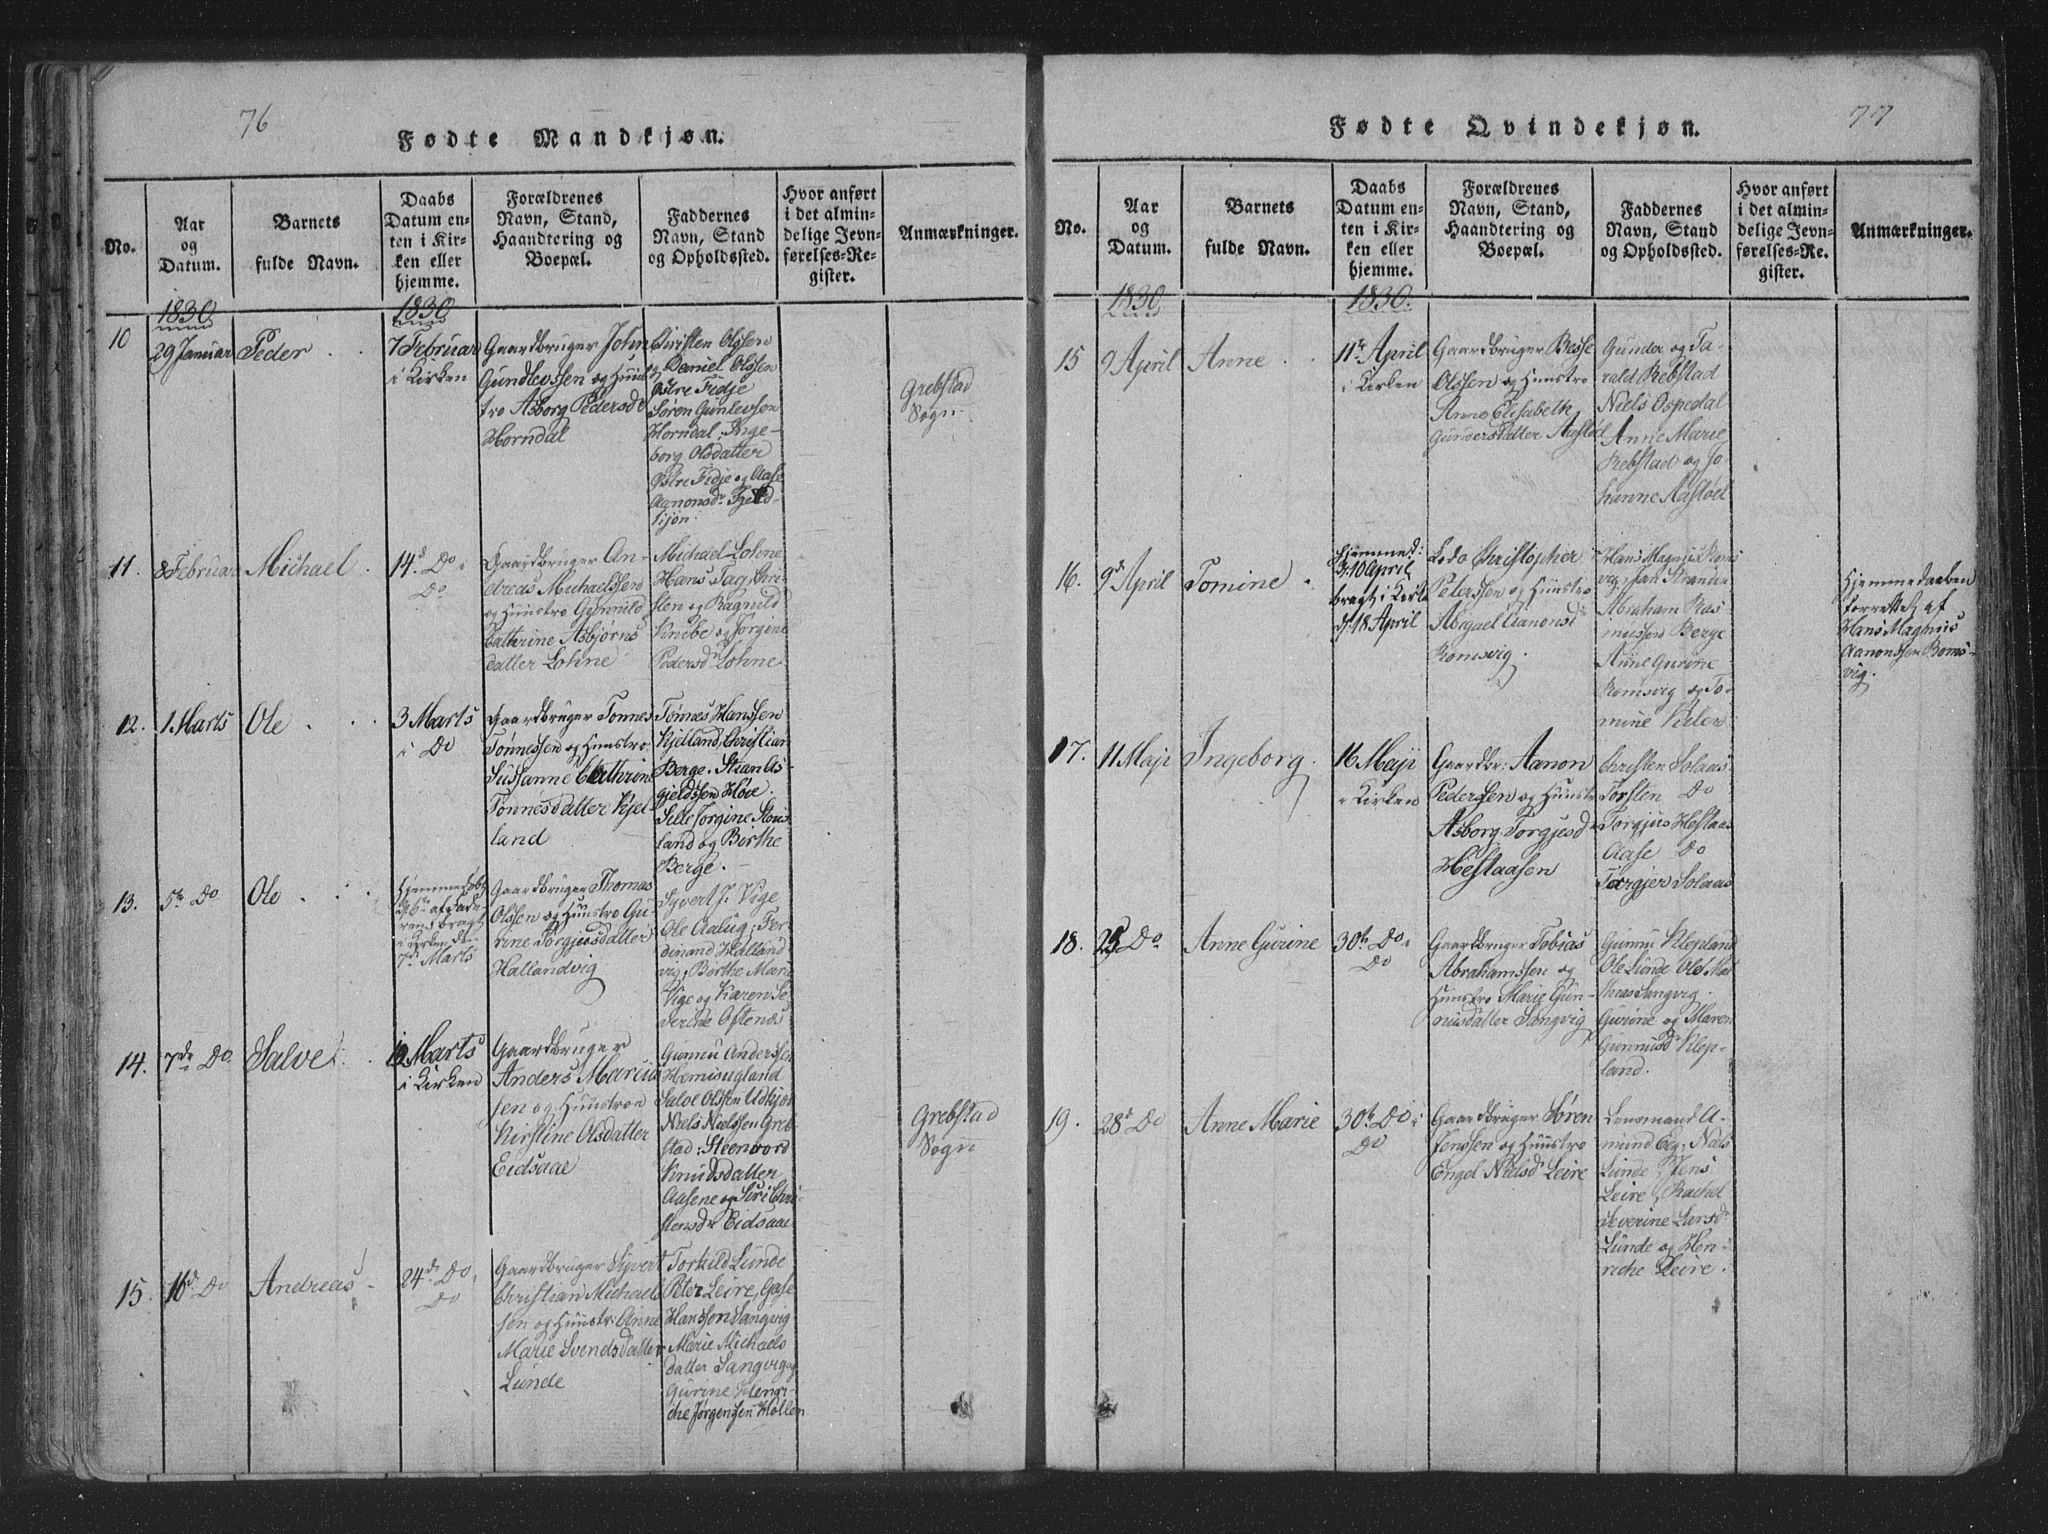 76
Fødte Mandkjøn.
No.
Aar
og
Datum.
Barnets
fulde Navn.
Daabs
Datum en-
ten i Kir-
ken eller
hjemme.
Forældrenes
Navn, Stand,
Haandtering og
Boepæl.
Faddernes
Navn, Stand
og Opholdssted.
Hvor anført
i det almin-
delige Jevn-
førelses-Re-
gister.
Anmærkninger.
1830
1830
10
29 Januar
Peder
7 Februar
i Kirken
Gaardbruger John
Gundlevssen og Huus-
tro Asborg Pedersdr
Horndal
Christen Olssen
og Daniel Olssen
Østre Fidje
Søren Gunlevsen
Horndal, Inge-
borg Olsdatter
Østre Fidje og Aase
Aanonsdr
Grebstad
Sogn
11.
8 Februar
Michael
14d Do i
Do
Gaardbruger An-
dreas Michaelssen
og Huustro Gunnild
Cathrine Asbjørns
datter Lohne
Michael Lohne
Hans
og Ragnild
og Jørgine
Pedersdr Lohne
12.
1 Marts
Ole
3 Marts
i Do
Gaardbruger Tønnes
Tønnessen og Huustro
Sussanne Cathrine
Tønnesdatter Kjel
land
Tønnes Hanssen
Kjelland, Christian
Berge. Stian As-
gjeldssen Høie.
Sille Jorgine Stous
land og Birthe
Berge.
13.
5te Do
Ole
Hjemmedøbt
bragt
i Kirken den
7de Marts
Gaardbruger Thomas
Olssen og Huustro Gu-
rine Torgjusdatter
Hallandvig
Syvert J. Vige
Ole Fer-
dinand Halland
vig, Berthe Marie
Vige og Karen Se-
verine Oftenes
14.
7de Do
Salve
Marts
i Kirken
Gaardbruger
Anders Marcus
sen og Huustroe
Kirstine Olsdatter
Eidsaae
Gunnu Anderssen
Salve Olssen
Niels Nielssen Greb-
stad: Steenvord
Knudsdatter
Aasene og Siri Chri-
stensdr Eidsaae
Grebstad
Sogn
15.
16d Do
Andreas
24d Do i
Do
Gaardbruger Syvert
Christian Michael
sen og Huustr: Anne
Marie Svendsdatter
Lunde
Torkild Lunde
Peter Leire,
Hanssen Sangvig
Marie Michaels
datter Sangvig og
Gurine Henri-
che Jørgenssen Hollen
77
Fødte Qvindekjøn.
No.
Aar
og
Datum.
Barnets
fulde Navn.
Daabs
Datum en-
ten i Kir-
ken eller
hjemme.
Forældrenes
Navn, Stand,
Haandtering og
Boepæl.
Faddernes
Navn, Stand
og Opholdssted.
Hvor anført
i det almin-
delige Jevn-
førelses-Re-
gister.
Anmærkninger.
1830
1830
15
9 April
Anne
11te April
i Kirken
Gaardbruger Basse
Olssen og Huustro
Anne Elisabeth
Gundersdatter
Gunder og Ta-
rald Rebstad
Niels Ospedal
Anne Marie
Rebstad og Jo-
hanne
16.
9d April
Tomine
Hjemmed:
d: 10 April
bragt i Kirk
d. 18 April
Lods Christopher
Peterssen og Huustro
Abigael Aanonsdr
Romsvig.
Hans Magnus Roms
vig, Jan
Abraham Ras
mussen Berge
Anne Gurine
Romsvig og To-
mine
Hjemmedaaben
forrettet af
Hans Magnus
Aanonssen Roms-
vig.
17.
11 Maji
Ingeborg
16 Maji
i Kirken
Gaardbr: Aanon
Pederssen og Huustro
Asborg Torgjusdr
Hestaasen
Christen Solaas
Torsten Do
Torgjus Hestaas
Aase Do
Torgjer Solaas
18.
25 Do
Anne Gurine
30te Do i
Do
Gaardbruger Tobias
Abrahamssen og
Huustro Marie Gun-
nusdatter Sangvig
Gunnu Klepland
Ole Lunde Ole Mat
thias Sangvig.
Gurine og Maren
Gunnusdr Klep-
land.
19.
28d Do
Anne Marie
30te Do i
Do
Gaardbruger Søren
Jenssen og Huustro
Engel Nielsdr Leire
Lensmand A-
mund Eeg, Niels
Lunde, Jens
Leire, Rachel
Severine Larsdr
Lunde og Hen-
riche Leire.